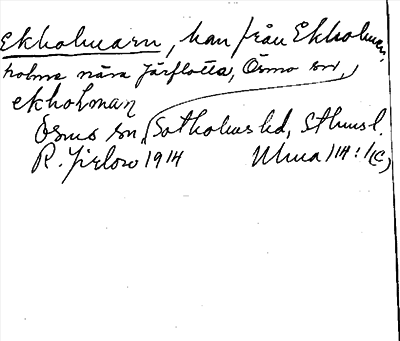 Ekholmarn, han från Ekholmen,
holme nära Järflotta, Ösmo sn,
ekholman
Ösmo sn, Sotholms hd, Sthms l.
R. Jirlow 1914